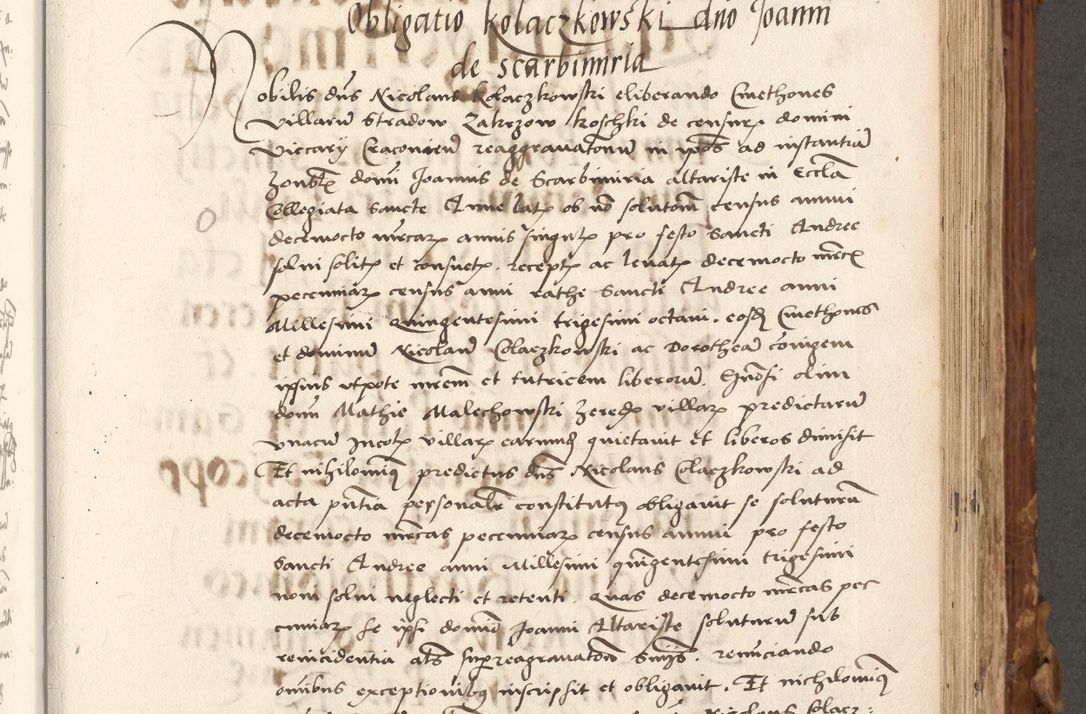 Obligatio Kolaczkowski dno Joanni
de Scarbimiria
Nobilis dns Nicolaus Kolaczkowski eliberando Cmethones
villaru Stradow Zakrzow Koschki de censur domini
Viccary Cracovien reaggravatoru in ipos ad instantia
honbl domi Joannis de Scarbimiria altariste in Eccla
Collegiata Sancte Anne lat ob no solutom census annui
decemocto mrcar annis singul pro festo Sancti Andree
solui solit et consuet. recept ac levat decemocto mrcs
pecuniar census anni rathe Sancti Andree anni
Millesimi Quingentesimi trigesimi octavi. eosd Cmethones
et dominu Nicolau Colaczkowski ac Dorothea coniugem
ipsius utpote mrem et tutricem liberoru. olim
domi Mathie Malechowski hered villar predictaru
unacu Incol villar earund quietavit et liberos dimisit
Et nihilominq predictus dns Nicolaus Colaczkowski ad
acta pntia personalr constitutq obligavit se soluturu
decemocto mrcas pecuniar census annui pro festo
Sancti Andree anni Millesimi quingentesimi trigesimi
noni solui neglecti et retenti. Quas decemocto mrcas pec
cuniar se ipsi domio Joanni Altariste soluturu sub
reincidentia ats superreagravaton snijs. renuciando
omnibus exceptionibq inscripsit et obligavit. Et nichilominq
Nicolaus Colacz: